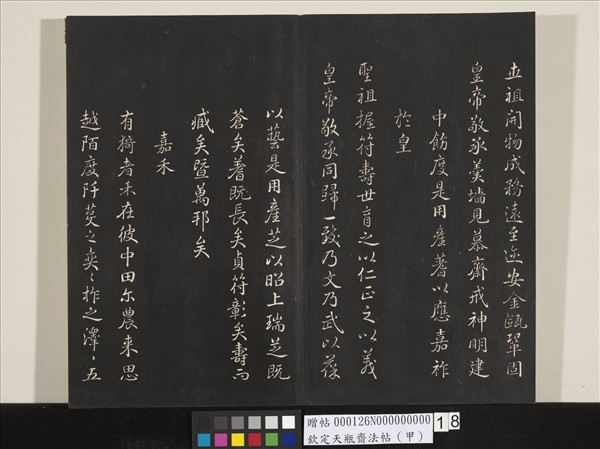 世祖開物成務遠至迩安金甌鞏固
皇帝敬承羹墻見慕齋戒神明建
中飭度是用産蓍以應嘉祚
於皇
聖祖握符壽世育之以仁正之以義
皇帝敬承同歸一致乃文乃武以葰
以藝是用產芝以昭上瑞芝既
蒼矣蓍既長矣貞符彰矣壽而
臧矣暨萬邦矣
嘉禾
有揭者禾在彼中田尔農来思
越陌度阡芟之奕奕柞之澤澤五
贈帖 000126N000000000 18
欽定天瓶齋法帖（甲）